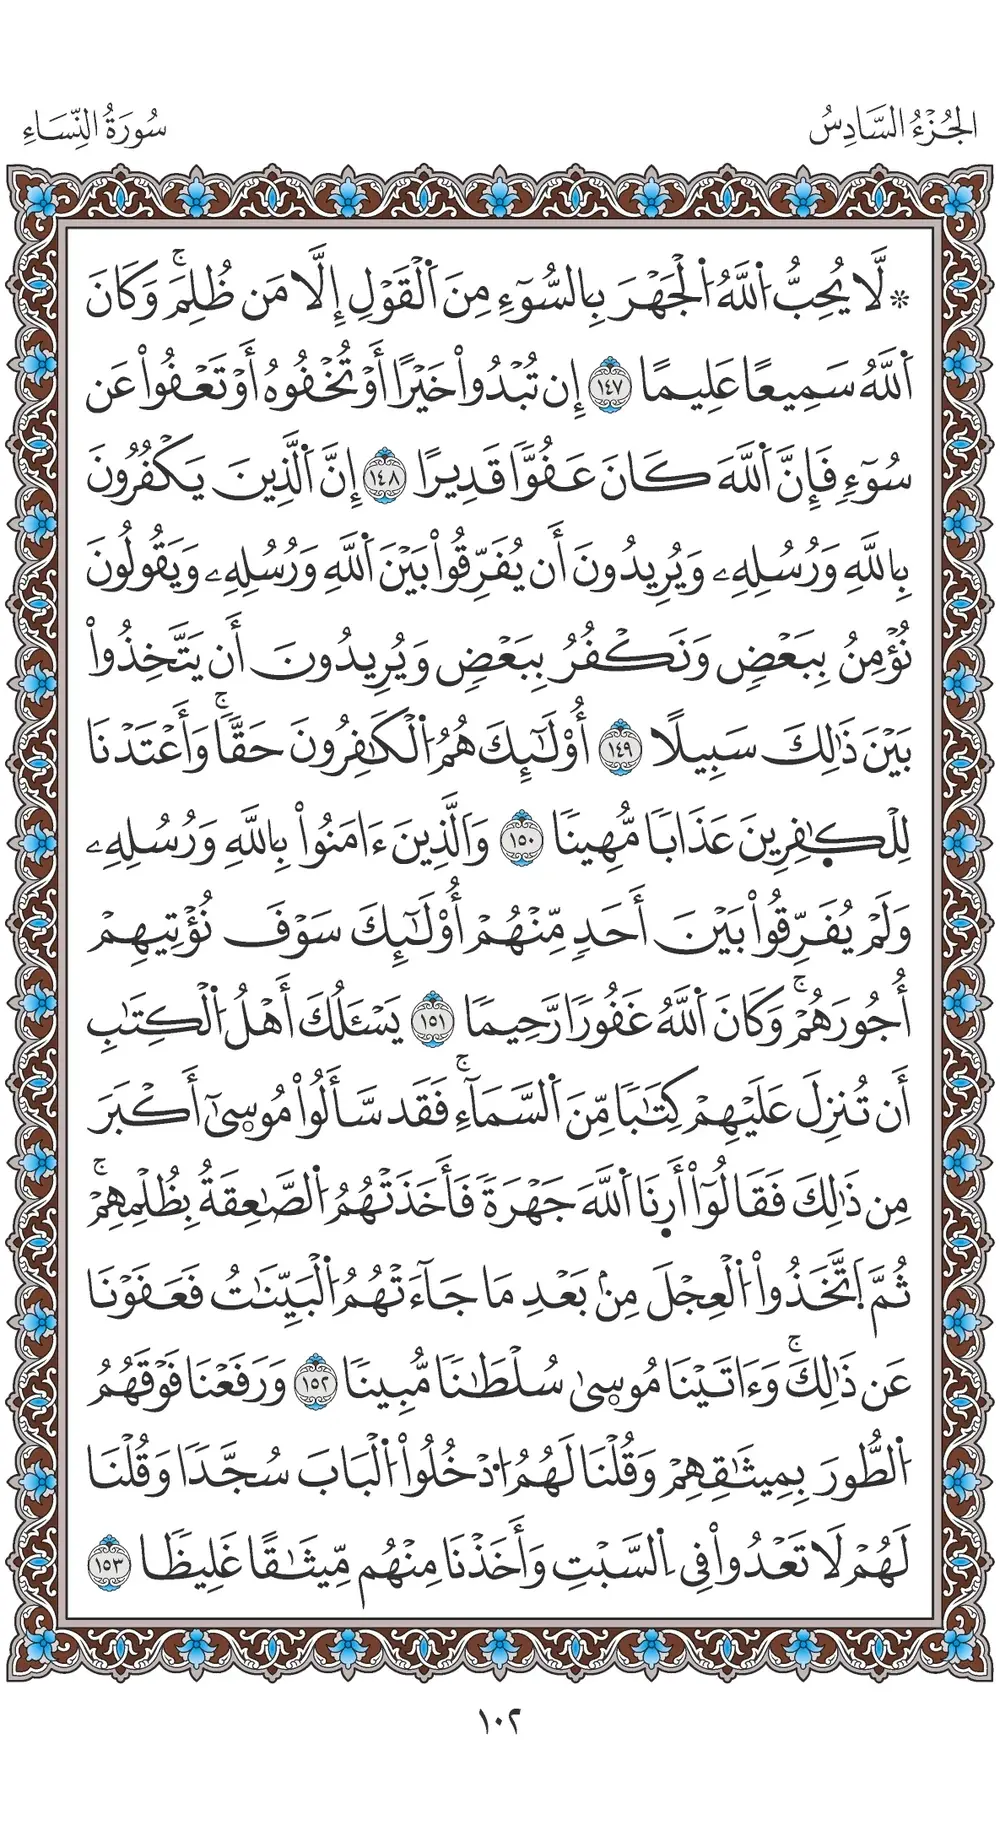 الجُزْءُ السَّادِسُ
سُورَةُ النِّسَاءِ
۞ لَّا يُحِبُّ اُ۬للَّهُ اُ۬لْجَهْرَ بِالسُّوٓءِ مِنَ اَ۬لْقَوْلِ إِلَّا مَن ظُلِمَۚ وَكَانَ
اَ۬للَّهُ سَمِيعًا عَلِيمًا ١٤٧ إِن تُبْدُواْ خَيْرًا أَوْ تُخْفُوهُ أَوْ تَعْفُواْ عَن
سُوٓءٍ فَإِنَّ اَ۬للَّهَ كَانَ عَفُوًّا قَدِيرًا ١٤٨ إِنَّ اَ۬لَّذِينَ يَكْفُرُونَ
بِاللَّهِ وَرُسُلِهِۦ وَيُرِيدُونَ أَن يُفَرِّقُواْ بَيْنَ اَ۬للَّهِ وَرُسُلِهِۦ وَيَقُولُونَ
نُؤْمِنُ بِبَعْضٍ وَنَكْفُرُ بِبَعْضٍ وَيُرِيدُونَ أَن يَتَّخِذُواْ
بَيْنَ ذَٰلِكَ سَبِيلًا ١٤٩ أُوْلَٰٓئِكَ هُمُ اُ۬لْكَٰفِرُونَ حَقًّاۚ وَأَعْتَدْنَا
لِلْكٜ۪فِرِينَ عَذَابًا مُّهِينًا ١٥٠ وَالَّذِينَ ءَامَنُواْ بِاللَّهِ وَرُسُلِهِۦ
وَلَمْ يُفَرِّقُواْ بَيْنَ أَحَدٍ مِّنْهُمْ أُوْلَٰٓئِكَ سَوْفَ نُؤْتِيهِمْ
أُجُورَهُمْۚ وَكَانَ اَ۬للَّهُ غَفُورًا رَّحِيمًا ١٥١ يَسْـَٔلُكَ أَهْلُ اُ۬لْكِتَٰبِ
أَن تُنزِلَ عَلَيْهِمْ كِتَٰبًا مِّنَ اَ۬لسَّمَآءِۚ فَقَد سَّأَلُواْ مُوس۪ىٰٓ أَكْبَرَ
مِن ذَٰلِكَ فَقَالُوٓاْ أَر۪نَا اَ۬للَّهَ جَهْرَةً فَأَخَذَتْهُمُ اُ۬لصَّٰعِقَةُ بِظُلْمِهِمْۚ
ثُمَّ اَ۪تَّخَذُواْ اُ۬لْعِجْلَ مِنۢ بَعْدِ مَا جَآءَتْهُمُ اُ۬لْبَيِّنَٰتُ فَعَفَوْنَا
عَن ذَٰلِكَۚ وَءَاتَيْنَا مُوس۪ىٰ سُلْطَٰنًا مُّبِينًا ١٥٢ وَرَفَعْنَا فَوْقَهُمُ
اُ۬لطُّورَ بِمِيثَٰقِهِمْ وَقُلْنَا لَهُمُ اُ۟دْخُلُواْ اُ۬لْبَابَ سُجَّدًا وَقُلْنَا
لَهُمْ لَا تَعْدُواْ فِي اِ۬لسَّبْتِ وَأَخَذْنَا مِنْهُم مِّيثَٰقًا غَلِيظًا ١٥٣
١٠٢